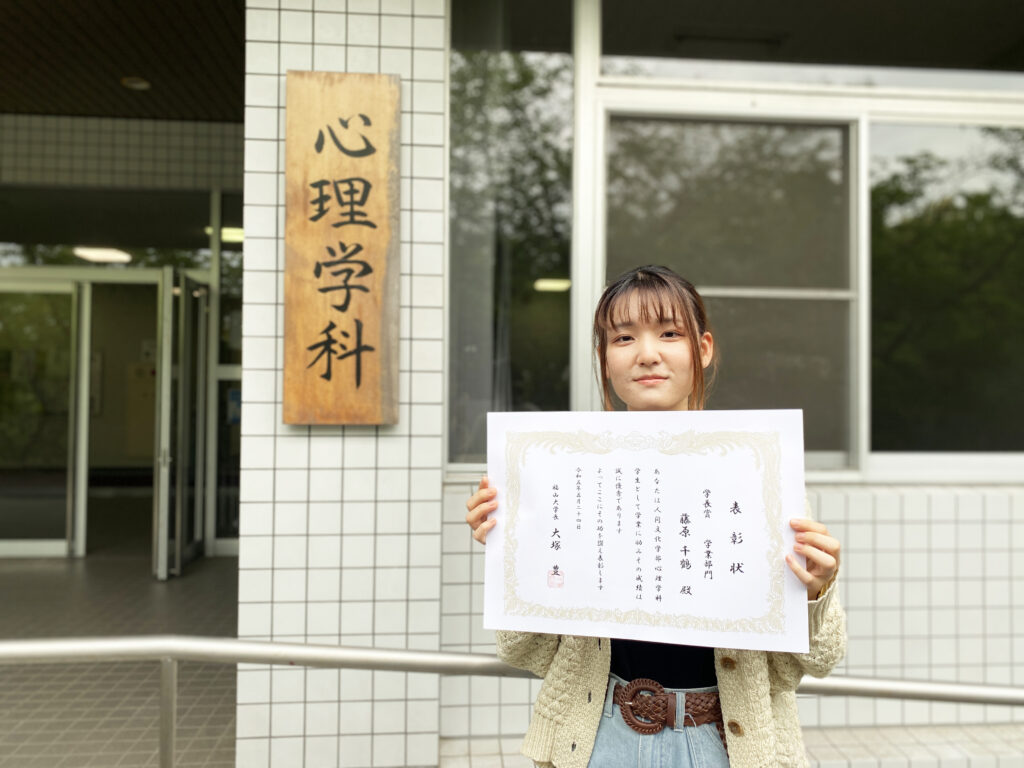 心理学科
表彰状
学長賞 学業部門
藤原 千鶴 殿
あなたは人間文化学部心理学科
学生として学業に励みその成績は
誠に優秀であります
よってここにその功を讃え表彰します
令和五年五月二十四日
福山大学長 大塚 豊